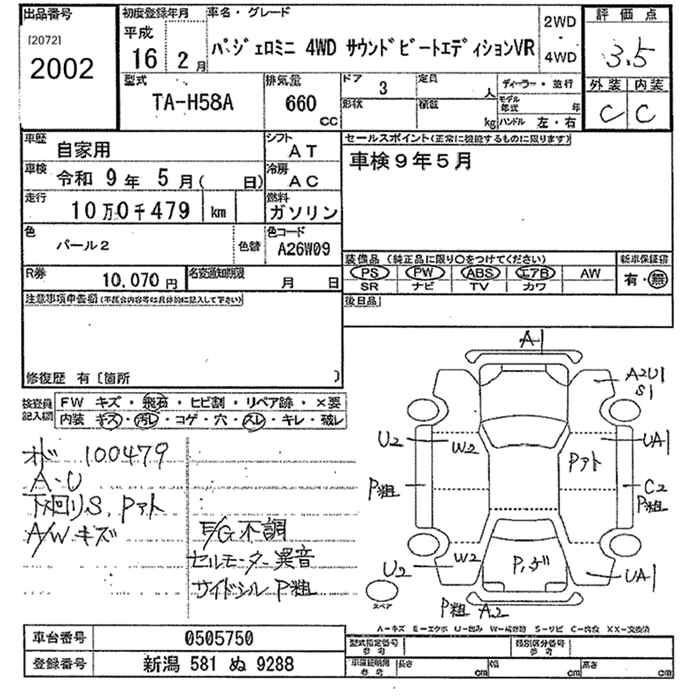 出品番号
[2072]
2002
初度登録年月
平成
16 2月
車名・グレード
パジェロミニ 4WD サウンドビートエディションVR
2WD
・
4WD
評価点
3.5
外装 内装
C C
型式
TA-H58A
排気量
660
cc
ドア
3
定員
人
形状
積載
kg
ディーラー・並行
モデル
年式
年
ハンドル 左・右
車歴
自家用
シフト
AT
車検
令和 9年 5月( 日)
冷房
AC
走行
10万0千479 km
燃料
ガソリン
色
パール2
色替
色コード
A26W09
R券
10,070円
名変通知期限
月 日
セールスポイント(正常に機能するものに限ります)
車検9年5月
装備品 (純正品に限り〇をつけてください)
PS PW ABS エアB AW
SR ナビ TV カワ
新車保証書
有・無
後日品
注意事項申告欄(不具合内容等は具体的に記入して下さい)
修復歴 有〔箇所 〕
検査員
記入欄
FW キズ・飛石・ヒビ割・リペア跡・×要
内装 キズ・汚レ・コゲ・穴・スレ・キレ・破レ
オド 100479
A・U
下回りS、Pアト
A/Wキズ
E/G不調
セルモーター異音
サイドシルP粗
A1
A2U1
S1
U2
W2
Pアト
UA1
P粗
C2
P粗
U2
W2
UA1
スペア
P粗 A2
A-キズ E-エクボ U-凹み W-補修跡 S-サビ C-腐食 XX-交換済
車台番号
0505750
登録番号
新潟 581 ぬ 9288
型式指定番号
参考
類別区分番号
参考
車庫証明用
参考
長さ
cm
幅
cm
高さ
cm